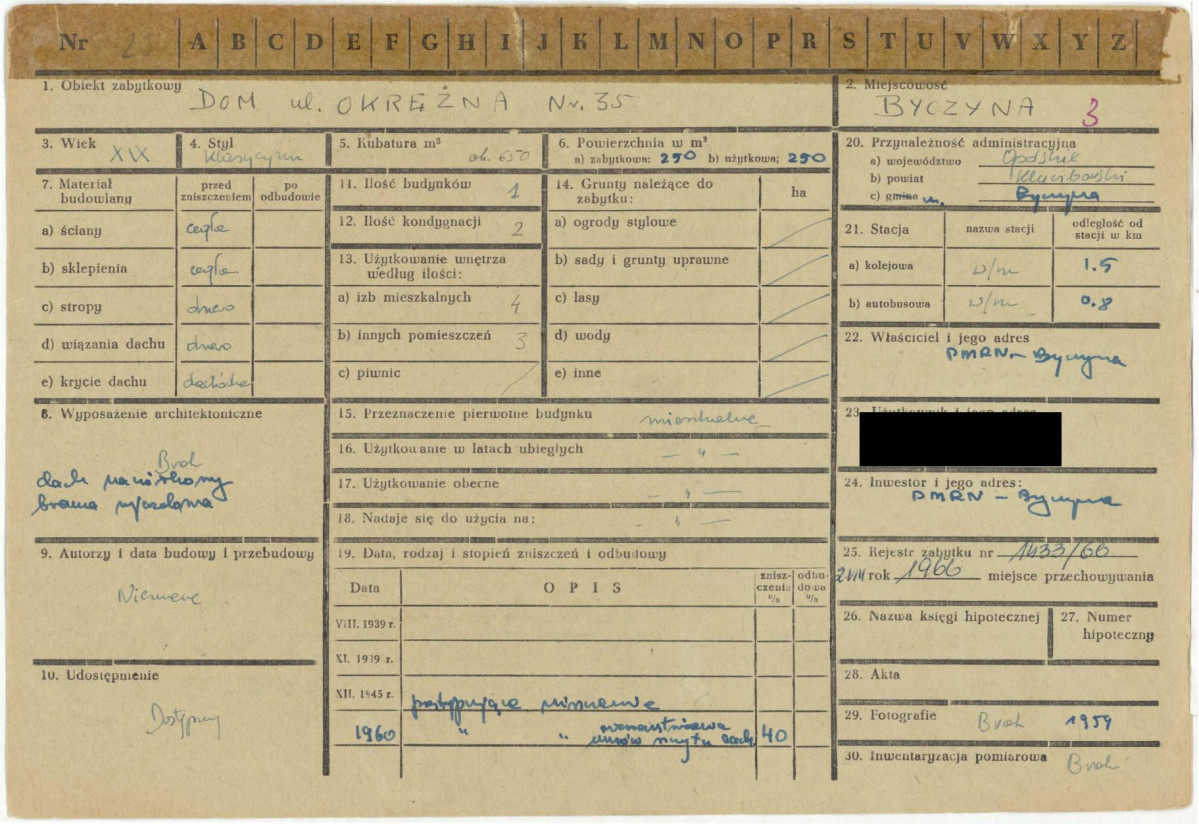 Nr 25 A B C D E F G H I J K L M N O P R S T U V W X Y Z
1. Obiekt zabytkowy DOM ul. OKRĘŻNA Nr. 35
2. Miejscowość
BYCZYNA 3
3. Wiek XIX
4. Styl
klasycyzm
5. Kubatura m³
ok. 650
6. Powierzchnia w m²
a) zabytkowa: 250 b) użytkowa; 250
7. Materiał budowlany
przed zniszczeniem
po odbudowie
a) ściany cegła
b) sklepienia cegła
c) stropy drewo
d) wiązania dachu drewo
e) krycie dachu dachówka
8. Wyposażenie architektoniczne
Brak
dach naczółkowy
brama wjazdowa
9. Autorzy i data budowy i przebudowy
Nieznane
10. Udostępnienie
Dostępny
11. Ilość budynków 1
12. Ilość kondygnacji 2
13. Użytkowanie wnętrza
według ilości:
a) izb mieszkalnych 4
b) innych pomieszczeń 3
c) piwnic /
14. Grunty należące do
zabytku:
ha
a) ogrody stylowe
b) sady i grunty uprawne
c) lasy
d) wody
e) inne
15. Przeznaczenie pierwotne budynku mieszkalne
16. Użytkowanie w latach ubiegłych — " —
17. Użytkowanie obecne — " —
18. Nadaje się do użycia na: — " —
19. Data, rodzaj i stopień zniszczeń i odbudowy
Data
O P I S
znisz-
czenia
%
odbu-
dowa
%
VIII. 1939 r.
XI. 1939 r.
XII. 1945 r. postępujące niszczenie
1960 " " dach 40
20. Przynależność administracyjna
a) województwo Opolskie
b) powiat Kluczborski
c) gmina m. Byczyna
21. Stacja
nazwa stacji
odległość od
stacji w km
a) kolejowa w/m 1.5
b) autobusowa w/m 0.8
22. Właściciel i jego adres
PMRN – Byczyna
23. Użytkownik i jego adres
24. Inwestor i jego adres:
PMRN – Byczyna
25. Rejestr zabytku nr 1433/66
2 VIII rok 1966 miejsce przechowywania
26. Nazwa księgi hipotecznej
27. Numer
hipoteczny
28. Akta
29. Fotografie Brak 1959
30. Inwentaryzacja pomiarowa Brak